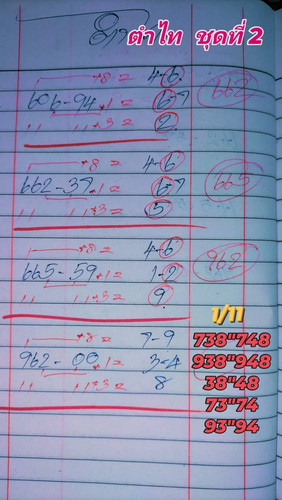 ตำไท ชุดที่ 2
+8= 4-6
606-94+1= 6-7 662
" " "+3= 2
+8= 4-6
662-37+1= 6-7 665
" " "+3= 5
+8= 4-6
665-59+1= 1-2 962
" " "+3= 9
1/11
+8= 7-9 738"748
962-00+1= 3-4 938"948
" " "+3= 8 38"48
73"74
93"94